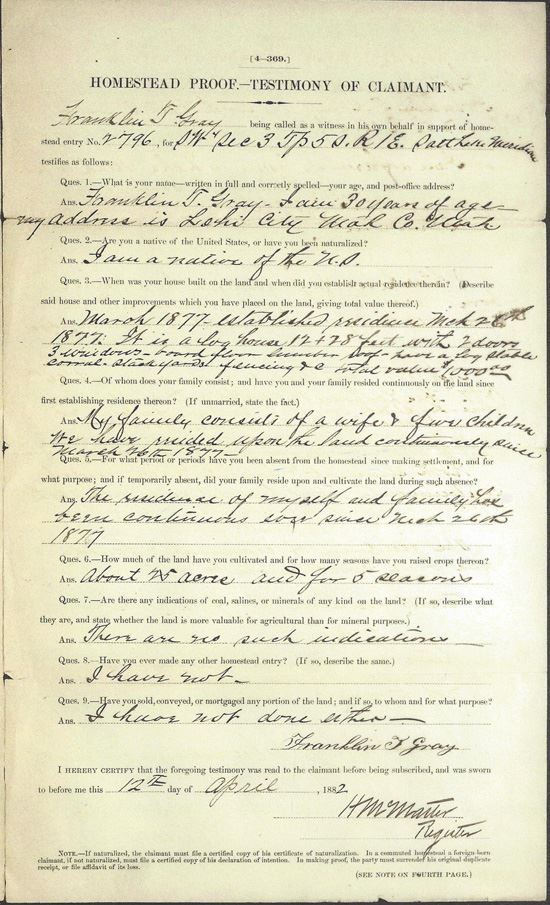 [4—369.]
HOMESTEAD PROOF.—TESTIMONY OF CLAIMANT.
Franklin T Gray being called as a witness in his own behalf in support of home-
stead entry No. 2796, for SW4 Sec 3 Tp 5 S. R 1 E. Salt Lake Meridian
testifies as follows:
Ques. 1.—What is your name—written in full and correctly spelled—your age, and post-office address?
Ans. Franklin T. Gray - I am 30 years of age -
my address is Lehi City Utah Co. Utah
Ques. 2.—Are you a native of the United States, or have you been naturalized?
Ans. I am a native of the U.S.
Ques. 3.—When was your house built on the land and when did you establish actual residence therein? (Describe
said house and other improvements which you have placed on the land, giving total value thereof.)
Ans. March 1877 - established residence Mch 26th
1877. It is a log house, 12 + 28 feet with 2 doors
3 windows - board floor lumber roof - have a log stable
corral - stack yards fencing &c total value $1,000.00
Ques. 4.—Of whom does your family consist; and have you and your family resided continuously on the land since
first establishing residence thereon? (If unmarried, state the fact.)
Ans. My family consists of a wife & five children
We have resided upon the land continuously since
March 26th 1877 -
Ques. 5.—For what period or periods have you been absent from the homestead since making settlement, and for
what purpose; and if temporarily absent, did your family reside upon and cultivate the land during such absence?
Ans. The residence of myself and family has
been continuous ever since Mch 26th
1877
Ques. 6.—How much of the land have you cultivated and for how many seasons have you raised crops thereon?
Ans. About 25 acres and for 5 seasons
Ques. 7.—Are there any indications of coal, salines, or minerals of any kind on the land? (If so, describe what
they are, and state whether the land is more valuable for agricultural than for mineral purposes.)
Ans. There are no such indications
Ques. 8.—Have you ever made any other homestead entry? (If so, describe the same.)
Ans. I have not -
Ques. 9.—Have you sold, conveyed, or mortgaged any portion of the land; and if so, to whom and for what purpose?
Ans. I have not done either —
Franklin T Gray
I HEREBY CERTIFY that the foregoing testimony was read to the claimant before being subscribed, and was sworn
to before me this 12TH day of April, 1882
H McMaster
Register
NOTE.—If naturalized, the claimant must file a certified copy of his certificate of naturalization. In a commuted homestead a foreign-born
claimant, if not naturalized, must file a certified copy of his declaration of intention. In making proof, the party must surrender his original duplicate
receipt, or file affidavit of its loss.
(SEE NOTE ON FOURTH PAGE.)